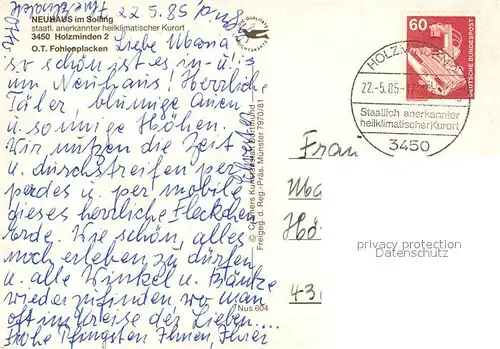 NEUHAUS im Solling
staatl. anerkannter heilklimatischer Kurort
3450 Holzminden 2
O.T. Fohlenplacken
22.5.85
Liebe
so schön ist es in u.
um Neuhaus! Herrliche
Täler blumige Auen
u. sonnige Höhen.
Wir nutzen die Zeit
u. durchstreifen per
pedes u. per mobile
dieses herrliche Fleckchen
Erde. Wie schön, alles
noch erleben zu dürfen
u. alle Winkel u. Bänke
wiederzufinden wo man
oft im Kreise der Lieben....
Frohe Pfingsten Ihnen, Ihrer
© Cramers Kunstanstalt Dortmund
Freigeg. d. Reg.-Präs. Münster 7970/81
Nus 604
60
DEUTSCHE BUNDESPOST
HOLZMINDEN
22.-5.85-17
Staatlich anerkannter
heilklimatischer Kurort
3450
Frau
Hö
43
privacy protection
Datenschutz